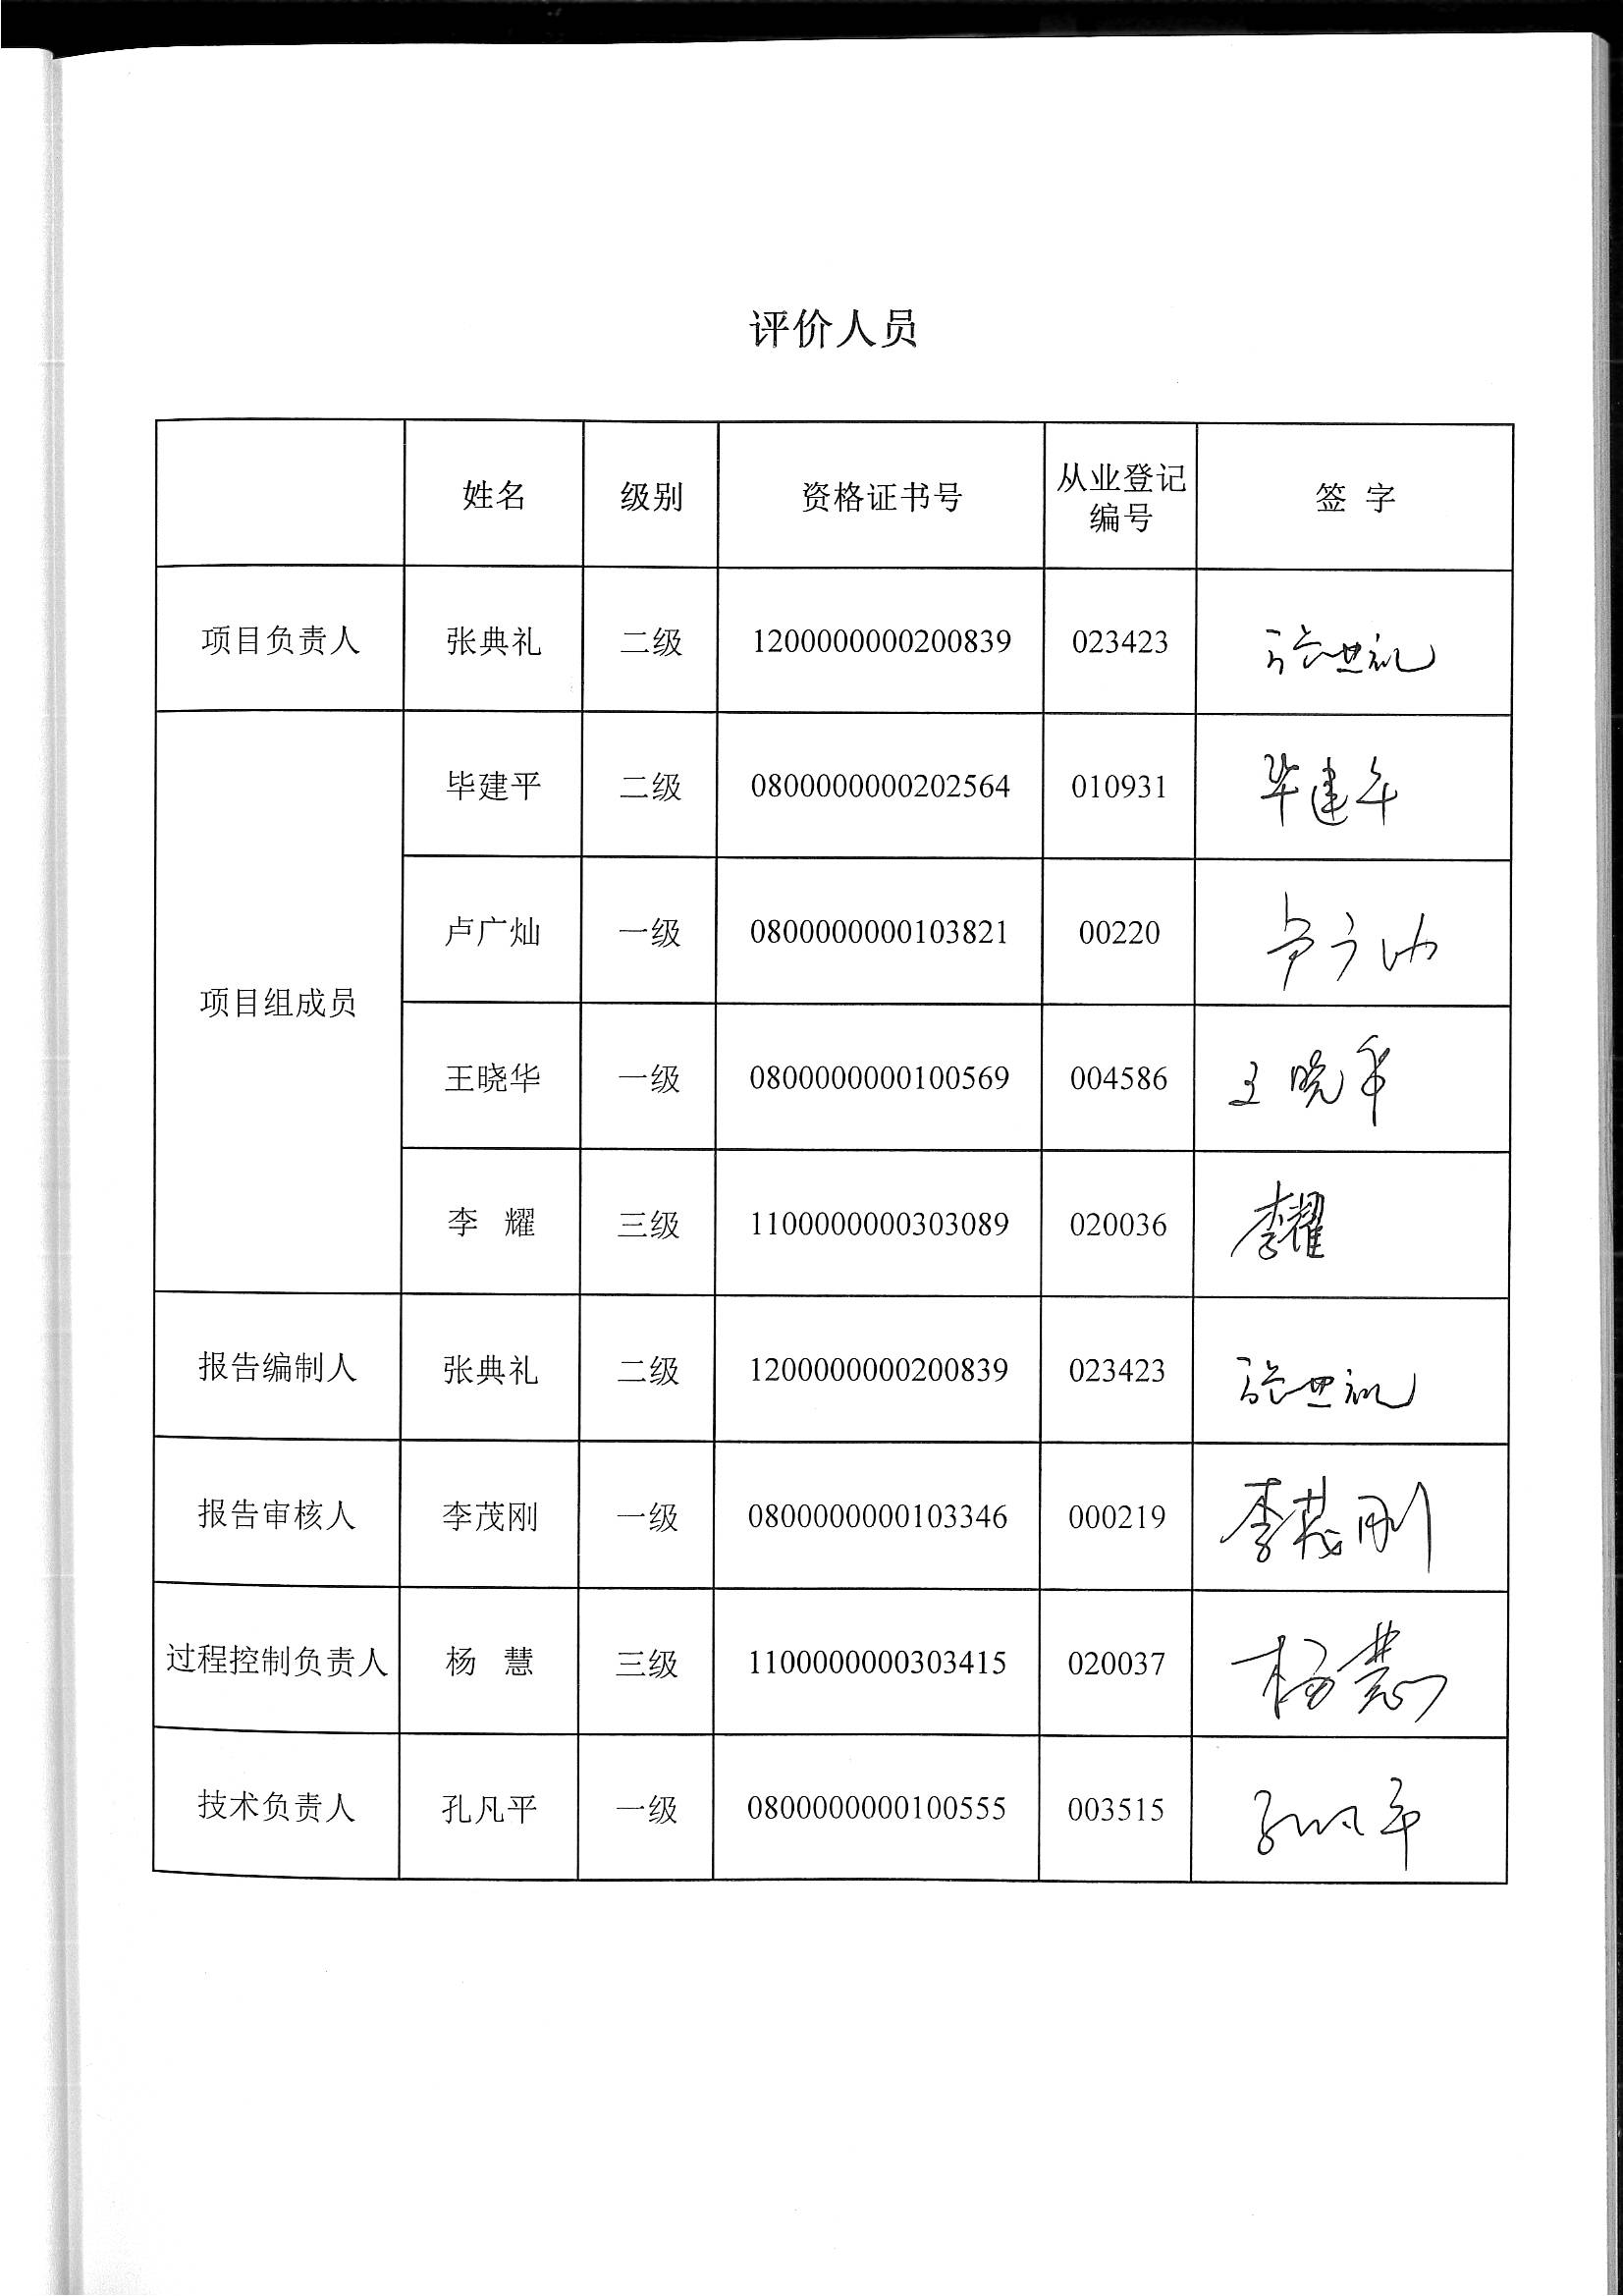 评价人员
姓名 级别 资格证书号 从业登记编号 签 字
项目负责人 张典礼 二级 1200000000200839 023423 张典礼
项目组成员 毕建平 二级 0800000000202564 010931 毕建平
卢广灿 一级 0800000000103821 00220 卢广灿
王晓华 一级 0800000000100569 004586 王晓华
李 耀 三级 1100000000303089 020036 李耀
报告编制人 张典礼 二级 1200000000200839 023423 张典礼
报告审核人 李茂刚 一级 0800000000103346 000219 李茂刚
过程控制负责人 杨 慧 三级 1100000000303415 020037 杨慧
技术负责人 孔凡平 一级 0800000000100555 003515 孔凡平